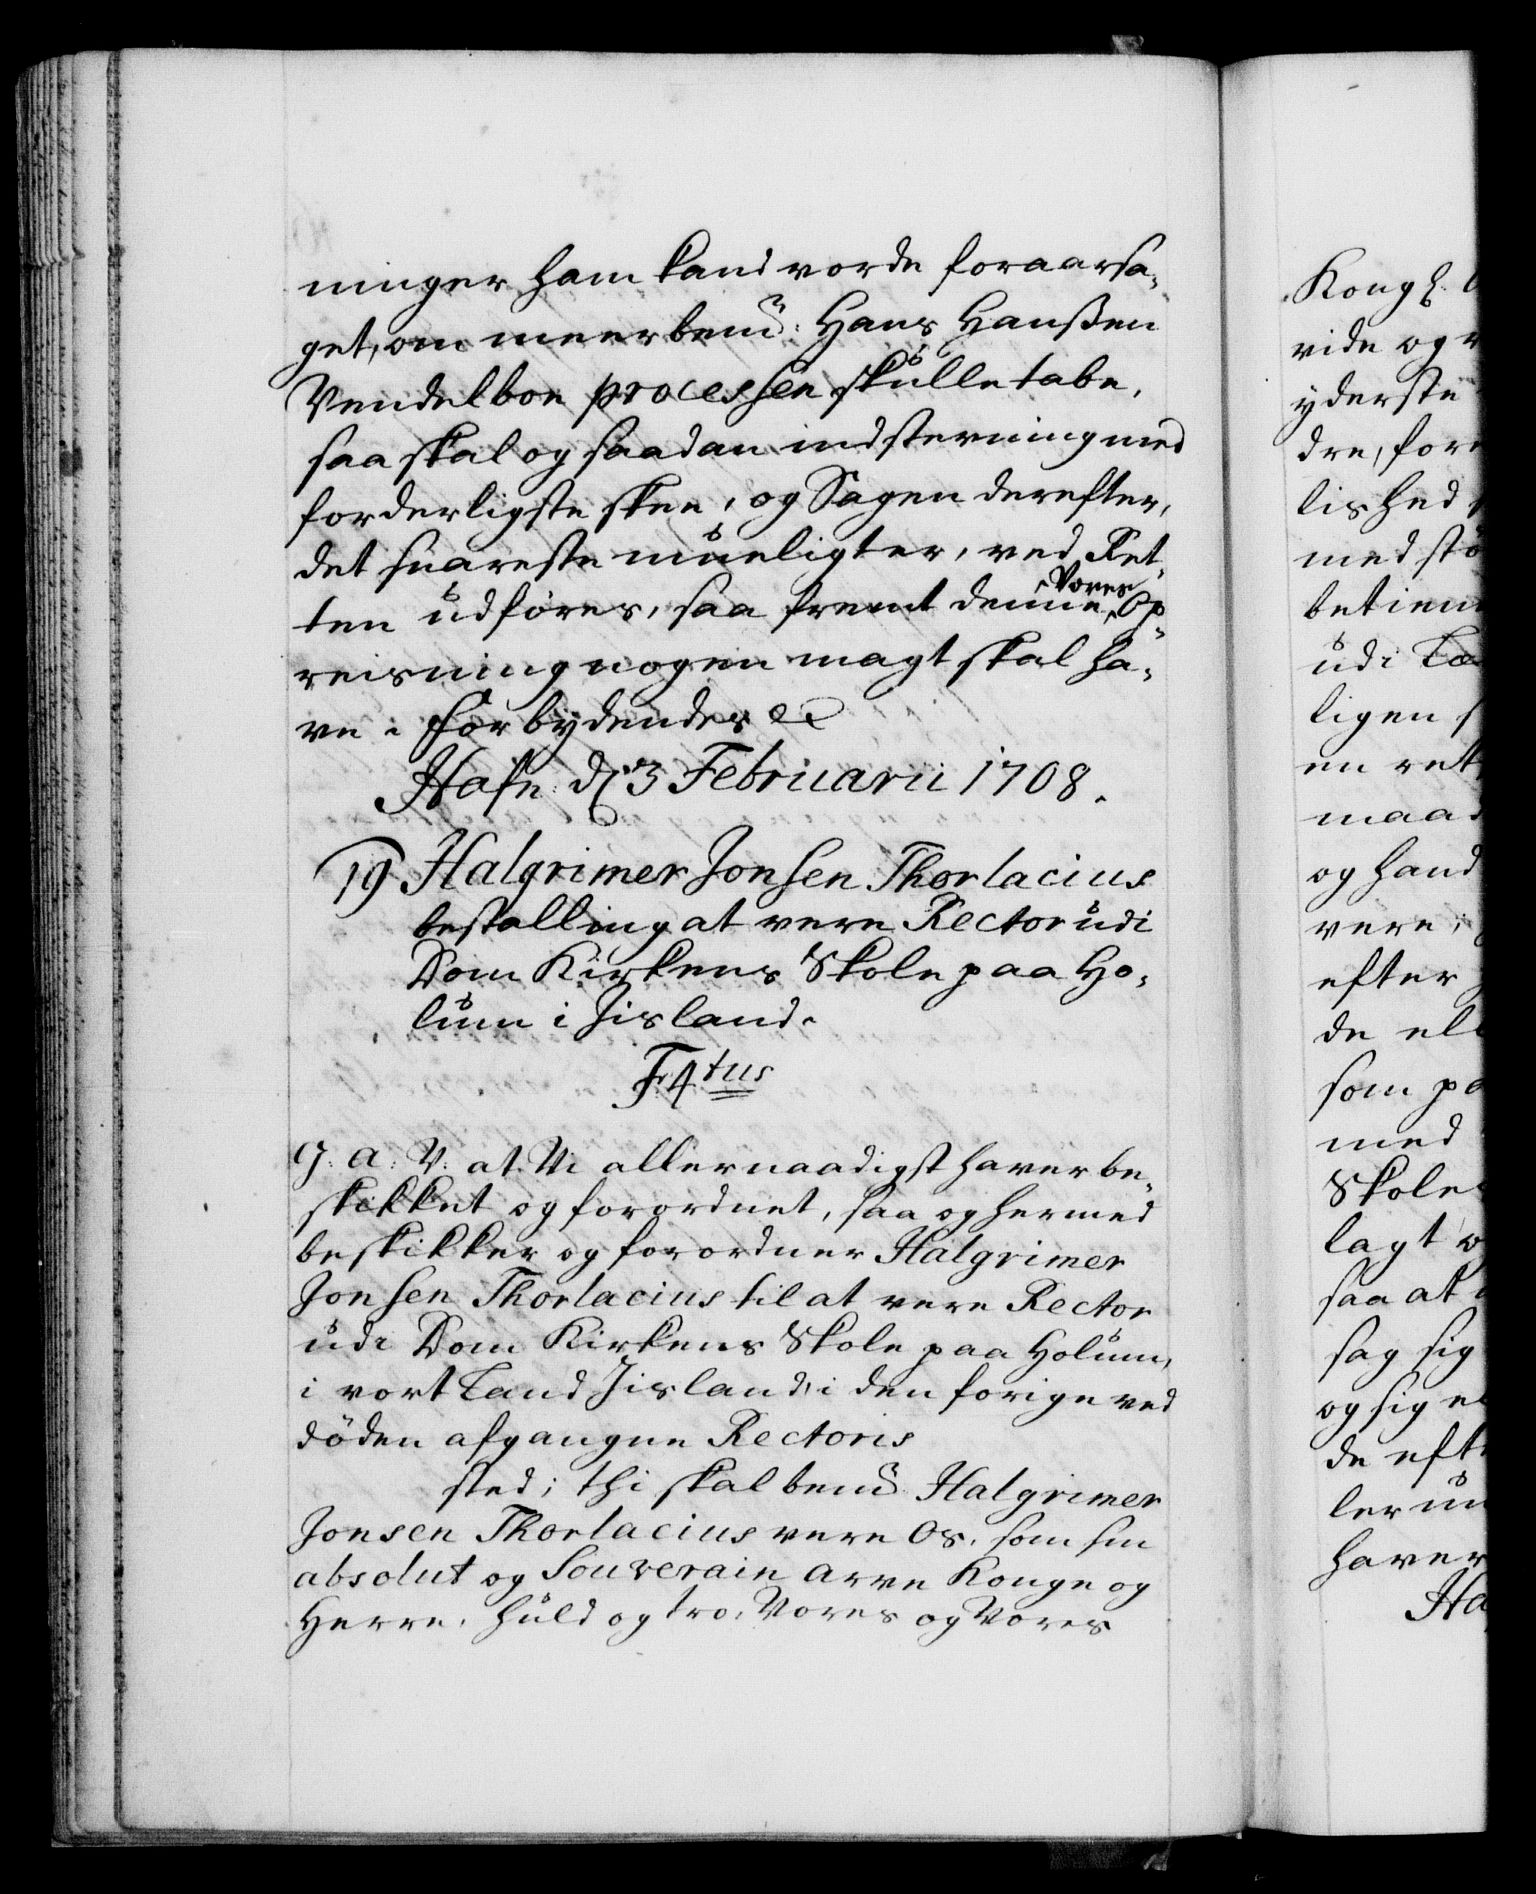 ninger ham kand vorde foraarsa-
get, om meerbem.te Hans Hanssen
Vendelboe processen skulle tabe,
saa skal og saadan indstevning med
forderligste skee, og Sagen derefter,
det snareste mueligt er, ved Ret-
ten udføres, saa fremt denne Vores Op-
reisning nogen magt skal ha-
ve. Forbydendes &c
Hafn: d. 3 Februarii 1708.
19 Halgrimer Jonsen Thorlacius
bestalling at vere Rector udi
Dom Kirkens Skole paa Ho-
lum i Jisland.
F. 4tus
G. A. V. at Vi allernaadigst haver be-
skikket og forordnet, saa og hermed
beskikker og forordner Halgrimer
Jonsen Thorlacius til at vere Rector
udi Dom Kirkens Skole paa Holum,
i vort Land Jisland, i den forige ved
døden afgangne Rectoris
sted; thi skal bem.te Halgrimer
Jonsen Thorlacius vere Os, som sin
absolut og Souverain Arve Konge og
Herre, huld og tro, Vores og Vores
Kongl.
vide og
yderste
dre, for
lished
med
betiene
udi
ligen
en ret
maa
og hand
vere,
efter
de
som
med
Skole
lagt
saa at
sag sig
og sig
de
ler
haver
Ha